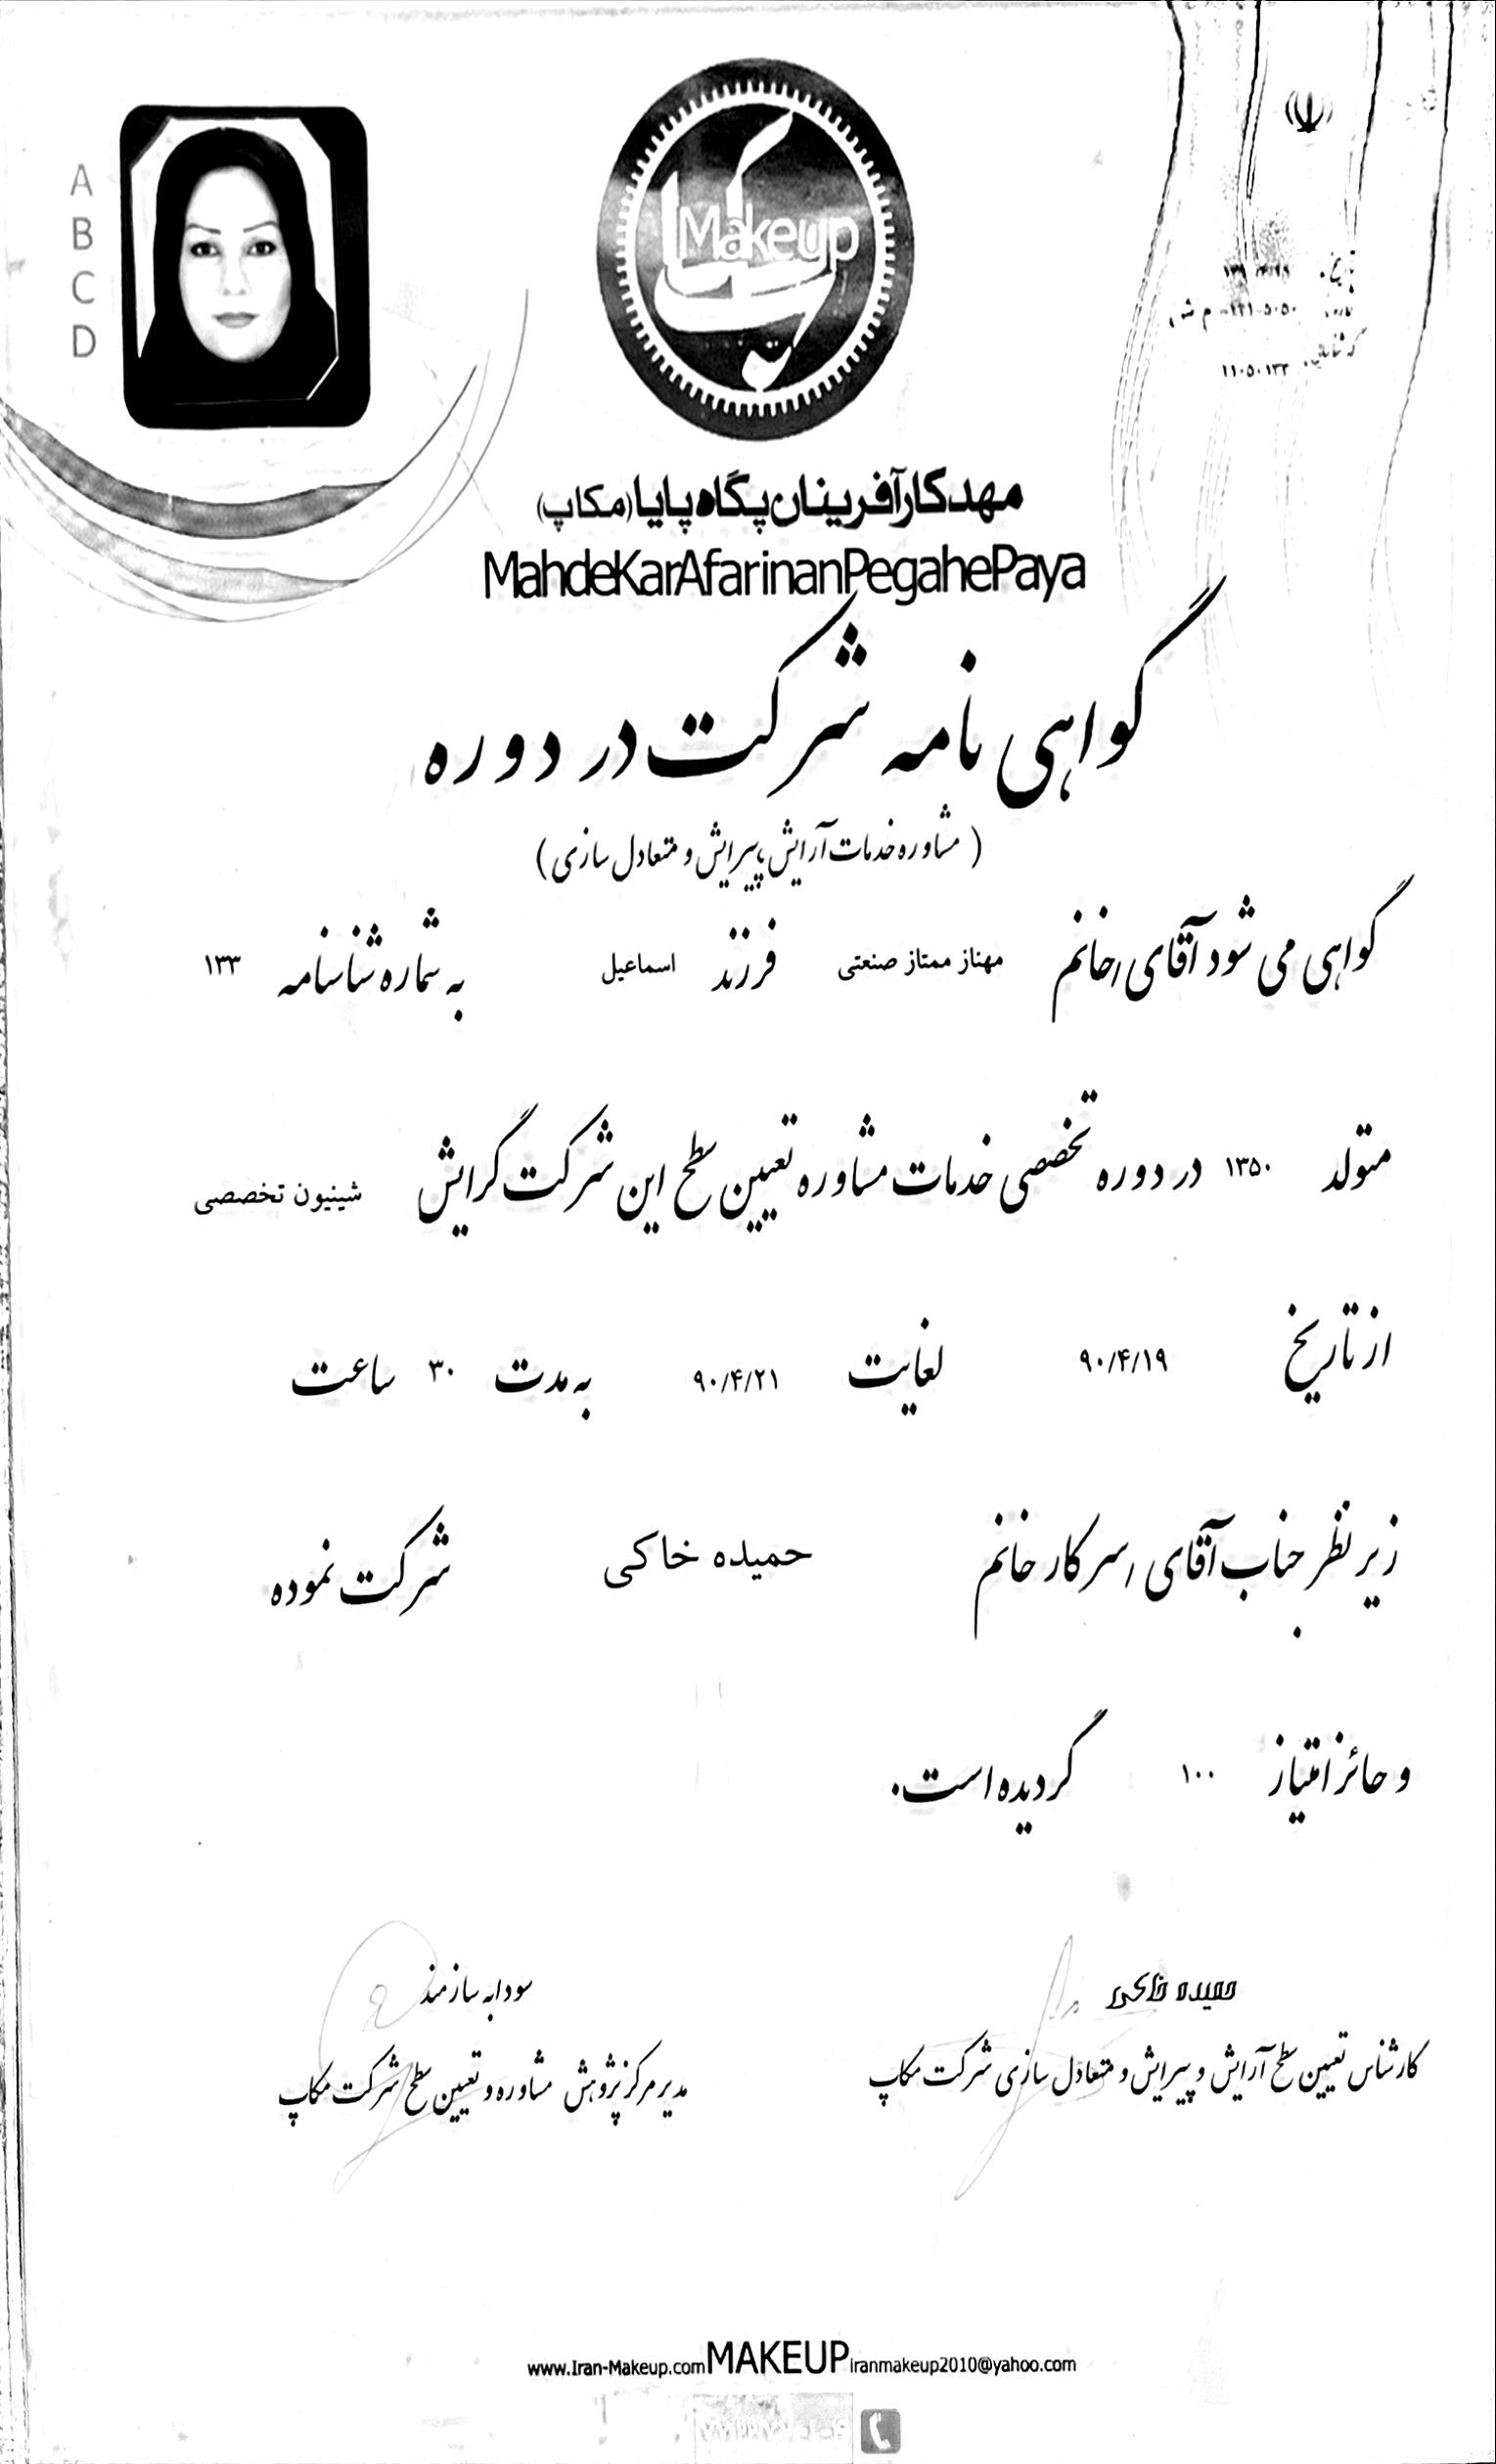 A
B
C
D
Makeup
تاریخ:
۱۱۰۵۰۱۳۳
مهد کارآفرینان پگاه پایا (مکاپ)
MahdeKarAfarinanPegahePaya
گواهی نامه شرکت در دوره
(مشاوره خدمات آرایش، پیرایش و متعادل سازی)
گواهی می شود آقای/خانم مهناز ممتاز صنعتی فرزند اسماعیل به شماره شناسنامه ۱۳۳
متولد ۱۳۵۰ در دوره تخصصی خدمات مشاوره تعیین سطح این شرکت گرایش شینیون تخصصی
از تاریخ ۹۰/۴/۱۹ لغایت ۹۰/۴/۲۱ به مدت ۳۰ ساعت
زیر نظر جناب آقای/سرکار خانم حمیده خاکی شرکت نموده
و حائز امتیاز ۱۰۰ گردیده است.
حمیده خاکی
کارشناس تعیین سطح آرایش و پیرایش و متعادل سازی شرکت مکاپ
سودابه سازمند
مدیر مرکز پژوهش مشاوره و تعیین سطح شرکت مکاپ
www.Iran-Makeup.com MAKEUP iranmakeup2010@yahoo.com